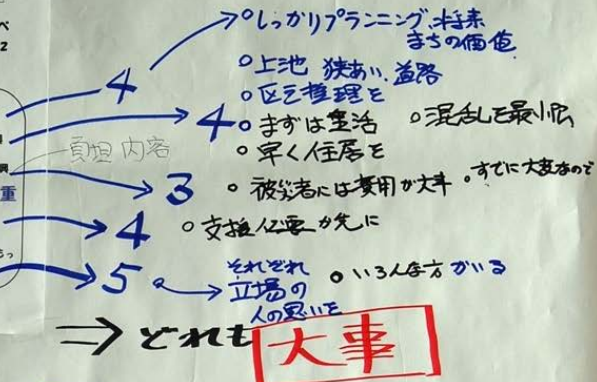 べ
2
重
4
○しっかりプランニング、将来
まちの価値
○土地 狭あい、道路
○区画整理を
4
○まずは生活 ○混乱を最小限
○早く住居を
負担 内容
3
○被災者には費用が大事 ○すでに大変なので
4
○支援 必要 が先に
5
それぞれ
立場の
人の思いを
○いろんな方がいる
⇒どれも大事